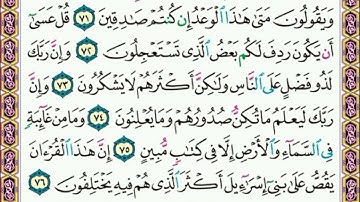 وَيَقُولُونَ مَتَىٰ هَٰذَا ٱلْوَعْدُ إِن كُنتُمْ صَٰدِقِينَ ٧١ قُلْ عَسَىٰٓ
أَن يَكُونَ رَدِفَ لَكُم بَعْضُ ٱلَّذِى تَسْتَعْجِلُونَ ٧٢ وَإِنَّ رَبَّكَ
لَذُو فَضْلٍ عَلَى ٱلنَّاسِ وَلَٰكِنَّ أَكْثَرَهُمْ لَا يَشْكُرُونَ ٧٣ وَإِنَّ
رَبَّكَ لَيَعْلَمُ مَا تُكِنُّ صُدُورُهُمْ وَمَا يُعْلِنُونَ ٧٤ وَمَا مِنْ غَآئِبَةٍ
فِى ٱلسَّمَآءِ وَٱلْأَرْضِ إِلَّا فِى كِتَٰبٍ مُّبِينٍ ٧٥ إِنَّ هَٰذَا ٱلْقُرْءَانَ
يَقُصُّ عَلَىٰ بَنِىٓ إِسْرَٰٓءِيلَ أَكْثَرَ ٱلَّذِى هُمْ فِيهِ يَخْتَلِفُونَ ٧٦